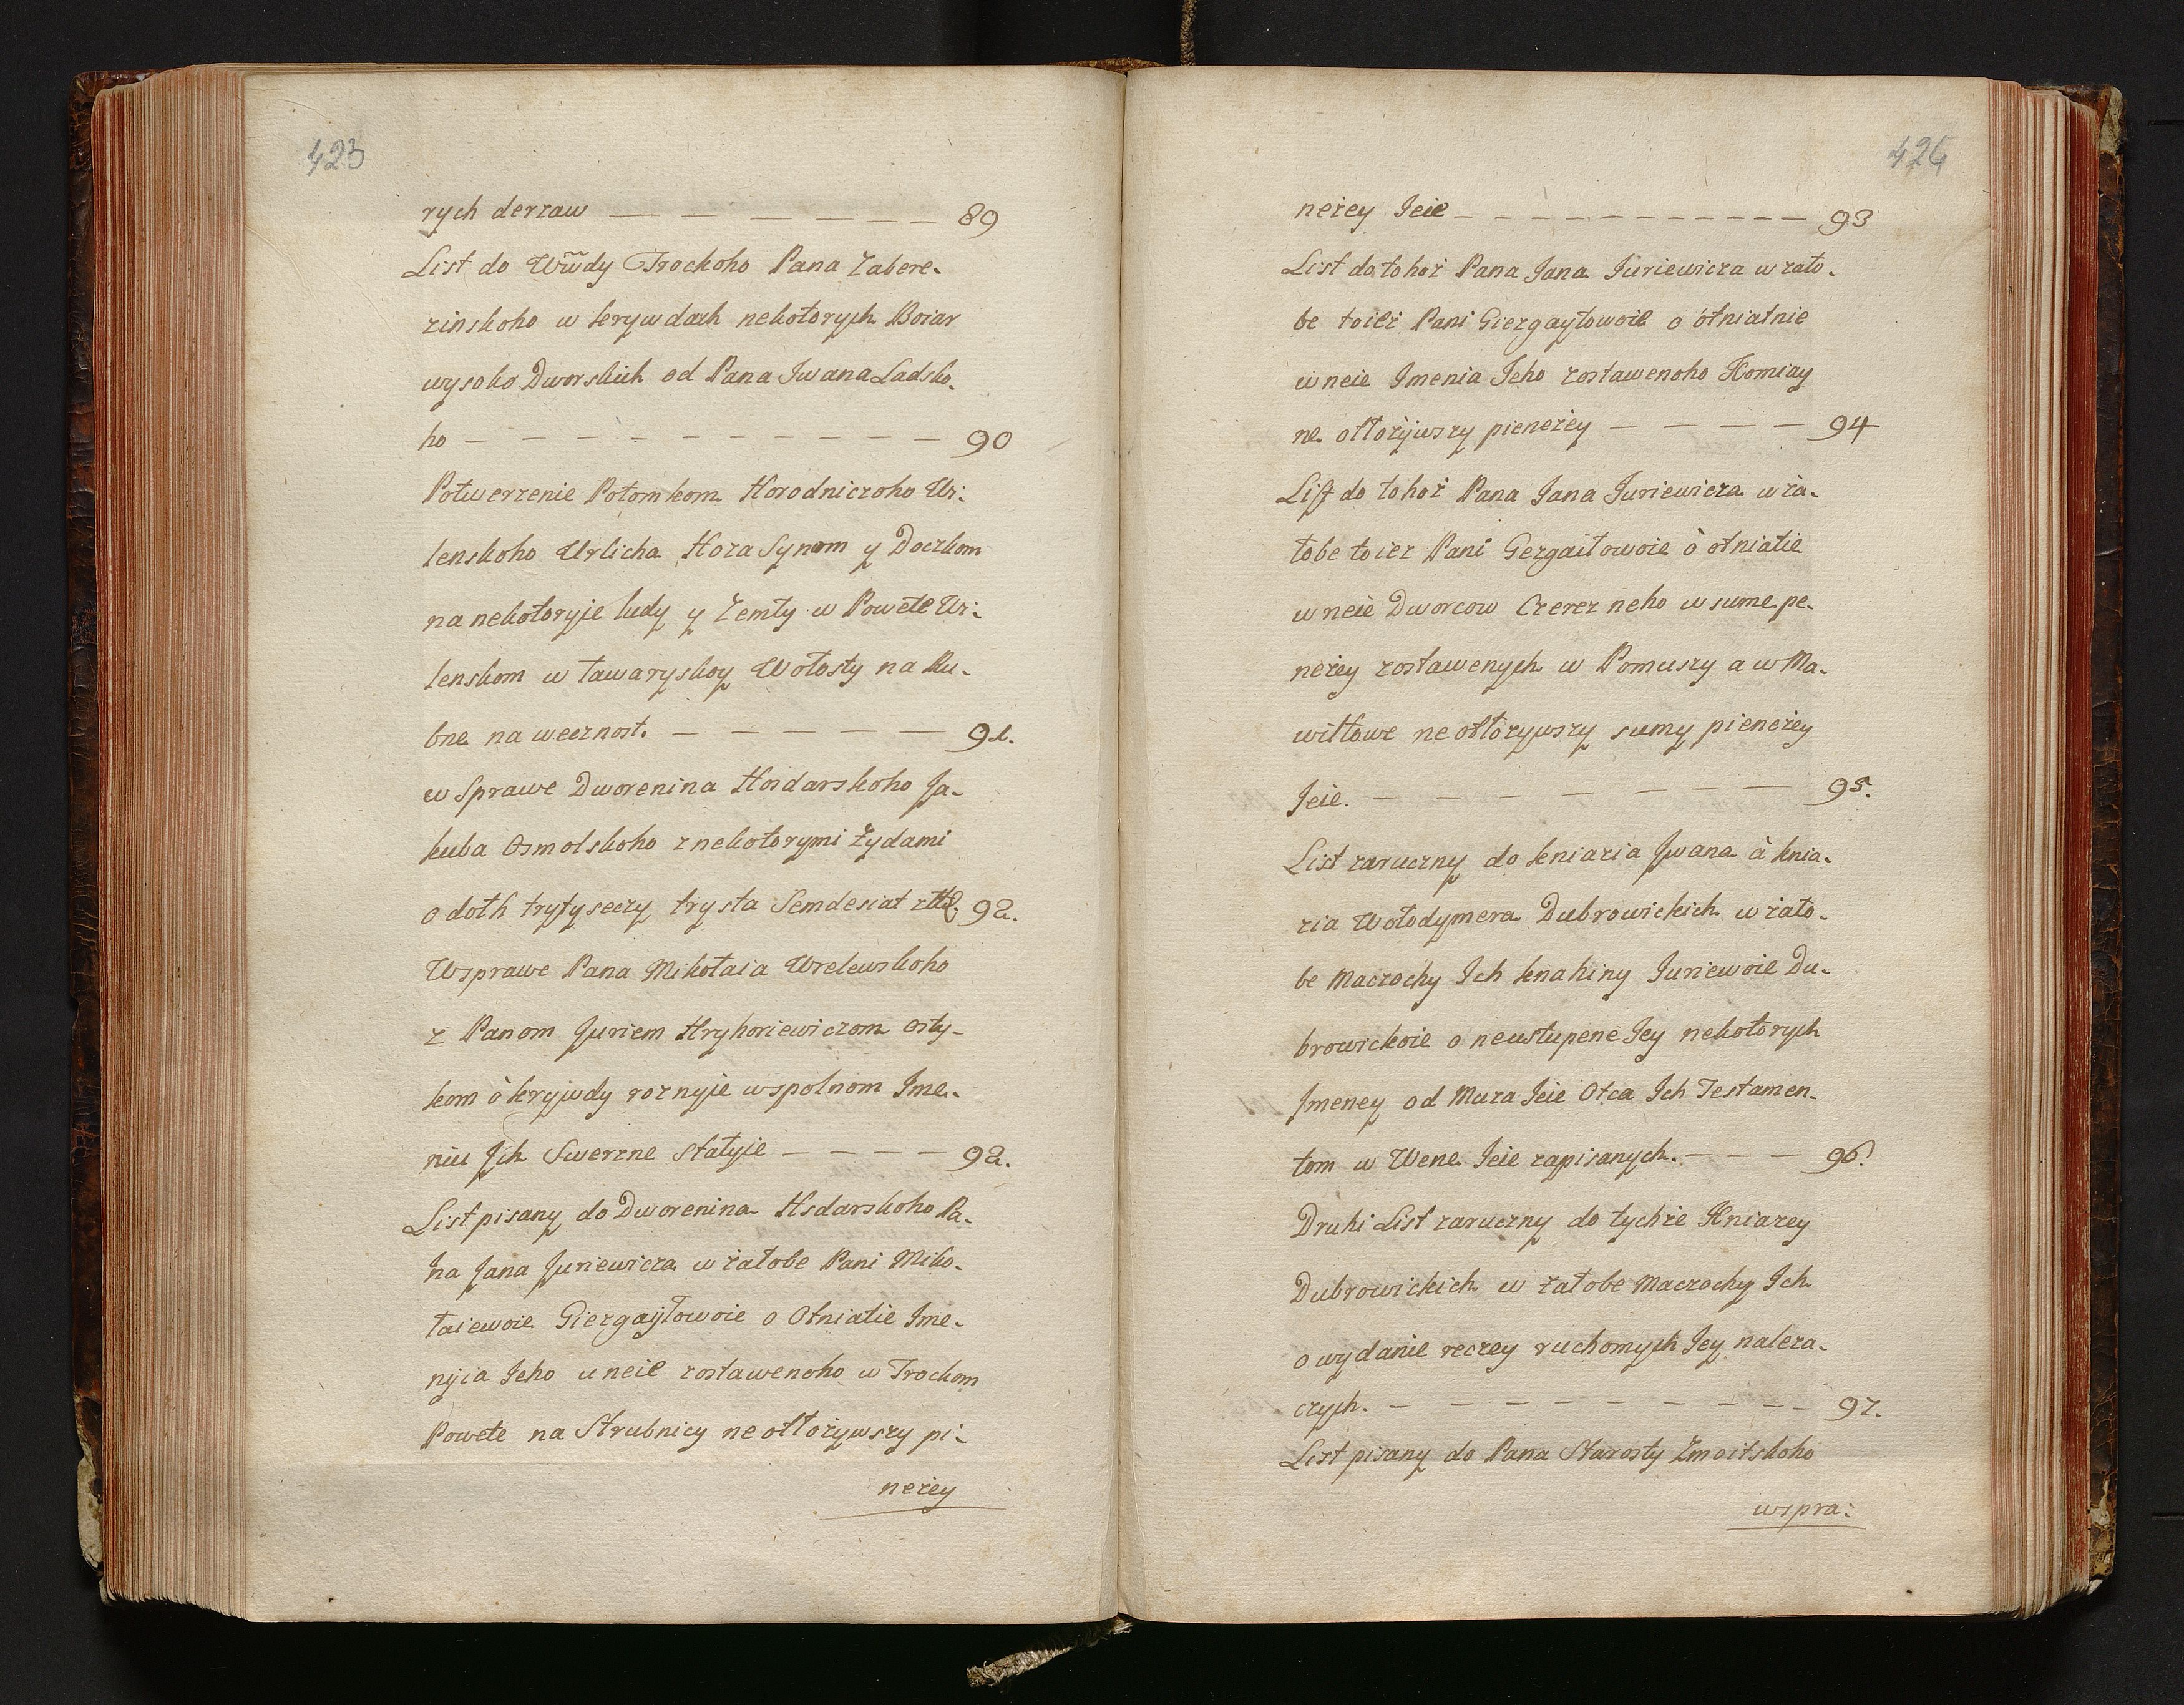 423
rych derzaw — — — — — — 89
List do Ww̃dy Trockoho Pana Zabere-
zinskoho w krywdach nekotorych Boiar
wysoko Dworskich od Pana Iwana Ladsko-
ho — — — — — — — — — 90
Potwerzenie Potomkom Horodniczoho Wi-
lenskoho Urlicha Hoza Synom y Doczkom
na nekotoryie ludy y Zemły w Powete Wi-
lenskom w ławaryskoy Wołosty na Ru-
bne na wecznost. — — — — — 91.
w Sprawe Dworenina Hosdarskoho Ja-
kuba Osmolskoho z nekotorymi Żydami
o dołh trytyseczy trysta Semdesiat 92.
Wsprawe Pana Mikołaia Wrelewskoho
z Panom Juriem Hryhoriewiczom Osty-
kom ò kryjwdy roznyje wspolnom Ime-
niu Jch Swerzne Stałyie — — — — 92.
List pisany do Dworenina Hsdarskoho Pa-
na Jana Juriewicza w żałobe Pani Miko-
łaiewoie Giezgayłowoie o Otniatie Ime-
nyia Jeho u neie zostawenoho w Trockom
Powete na Strubnicy ne otłożywszy pi-
neżey
424
neżey Ieie — — — — — — — — 93
List do tohoż Pana Jana Juriewicza w żało-
be toież Pani Giezgayłowoie o ótniatnie
w neie Imenia Jeho zostawenoho Homiay
ne otłożywszy pieneżey — — — — 94
List do tohoż Pana Jana Juriewicza w ża-
łobe toiez Pani Gezgaiłowoie ò otniatie
w neie Dworcow Czerez neho w sume pe-
neżey zostawenych w Pomuszy a w Ma-
wiltowe ne otłożywszy sumy pieneżey
Jeie. — — — — — — — 95.
List zaruczny do kniazia Jwana à knia-
zia Wołodymera Dubrowickich w żało-
be Maczochy Ich knahiny Juriewoie Du-
browickoie o neustupene Jey nekotorych
Jmeney od Muza Jeie Otca Ich Testamen-
tom w Wene Jeie zapisanych. — — — 96.
Druhi List zaruczny do tychże Kniazey
Dubrowickich w żałobe Maczochy Ich
o wydanie reczey ruchomych Jey naleza-
czych. — — — — — — — — 97.
List pisany do Pana Starosty Zmoitskoho
wspra: